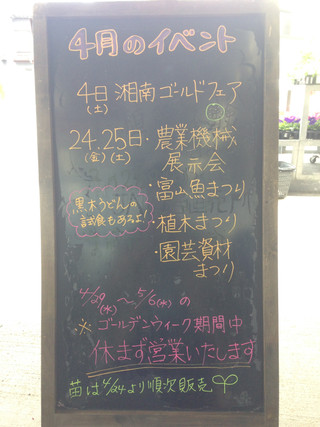 4月のイベント
4日 湘南ゴールドフェア
(土)
24.25日・農業機械
(金)(土) 展示会
・富山魚まつり
黒木うどんの
試食もあるよ!
・植木まつり
・園芸資材
まつり
4/29〜5/6の
(水) (水)
※ゴールデンウィーク期間中
休まず営業いたします
苗は4/24より順次販売